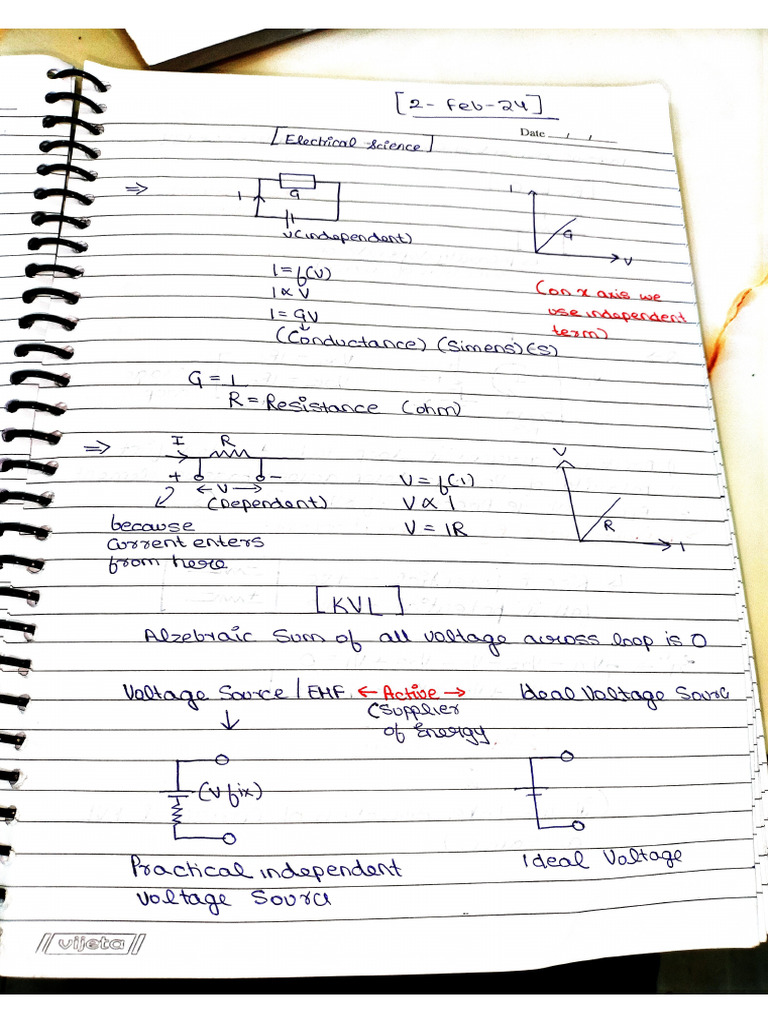 [2-Feb-24]
Date / /
[Electrical Science]
⇒ I G
V(independent)
I G V
I = f(V)
I ∝ V
I = GV
(Conductance) (Simens) (S)
(on x axis we
use independent
term)
G = 1
R = Resistance (ohm)
⇒ I R
+ ← V → -
(Dependent)
because
current enters
from here
V = f(I)
V ∝ I
V = IR
V R I
[KVL]
Alzebraic Sum of all voltage across loop is 0
Voltage Source / EMF ← Active → Ideal Voltage Sourc
(Supplier
of Energy
(V fix)
Practical independent
voltage Sourc
Ideal Voltage
vijeta